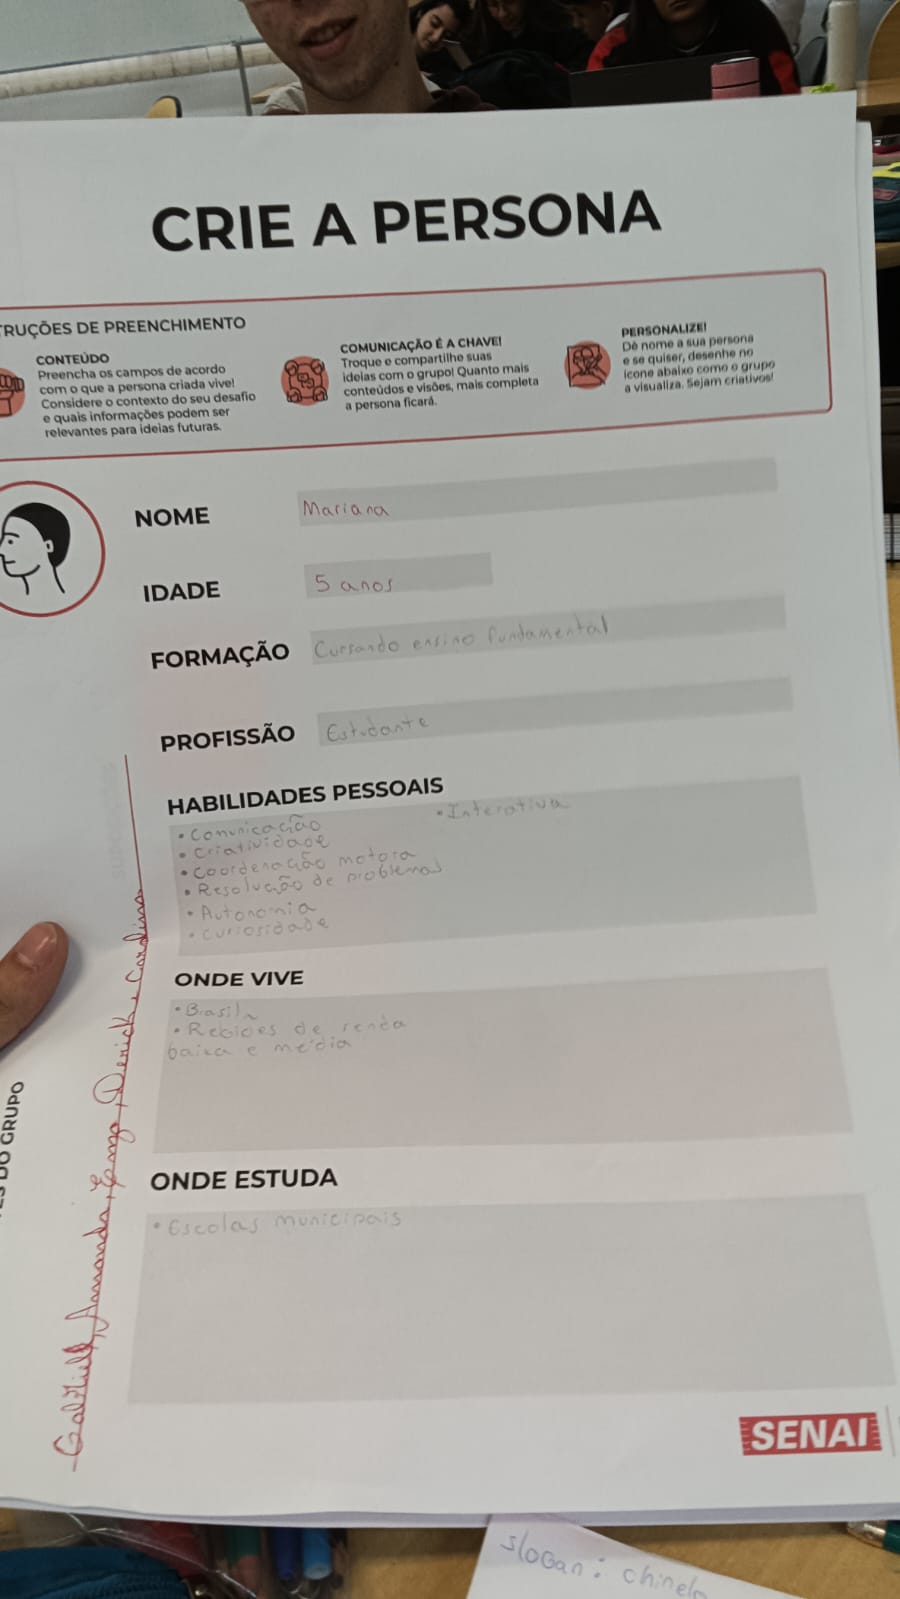 CRIE A PERSONA
TRUÇÕES DE PREENCHIMENTO
CONTEÚDO
Preencha os campos de acordo
com o que a persona criada vive!
Considere o contexto do seu desafio
e quais informações podem ser
relevantes para ideias futuras.
COMUNICAÇÃO É A CHAVE!
Troque e compartilhe suas
ideias com o grupo! Quanto mais
conteúdos e visões, mais completa
a persona ficará.
PERSONALIZE!
Dê nome a sua persona
e se quiser, desenhe no
ícone abaixo como o grupo
a visualiza. Sejam criativos!
NOME Mariana
IDADE 5 anos
FORMAÇÃO Cursando ensino fundamental
PROFISSÃO Estudante
HABILIDADES PESSOAIS
• Comunicação
• Interativa
• Criatividade
• Coordenação motora
• Resolução de problemas
• Autonomia
• Curiosidade
ONDE VIVE
• Brasil
• Regiões de renda
baixa e média
ONDE ESTUDA
• Escolas municipais
DO GRUPO
Amanda, Enzo, Derick e Carolina
SENAI
slogan: chinel